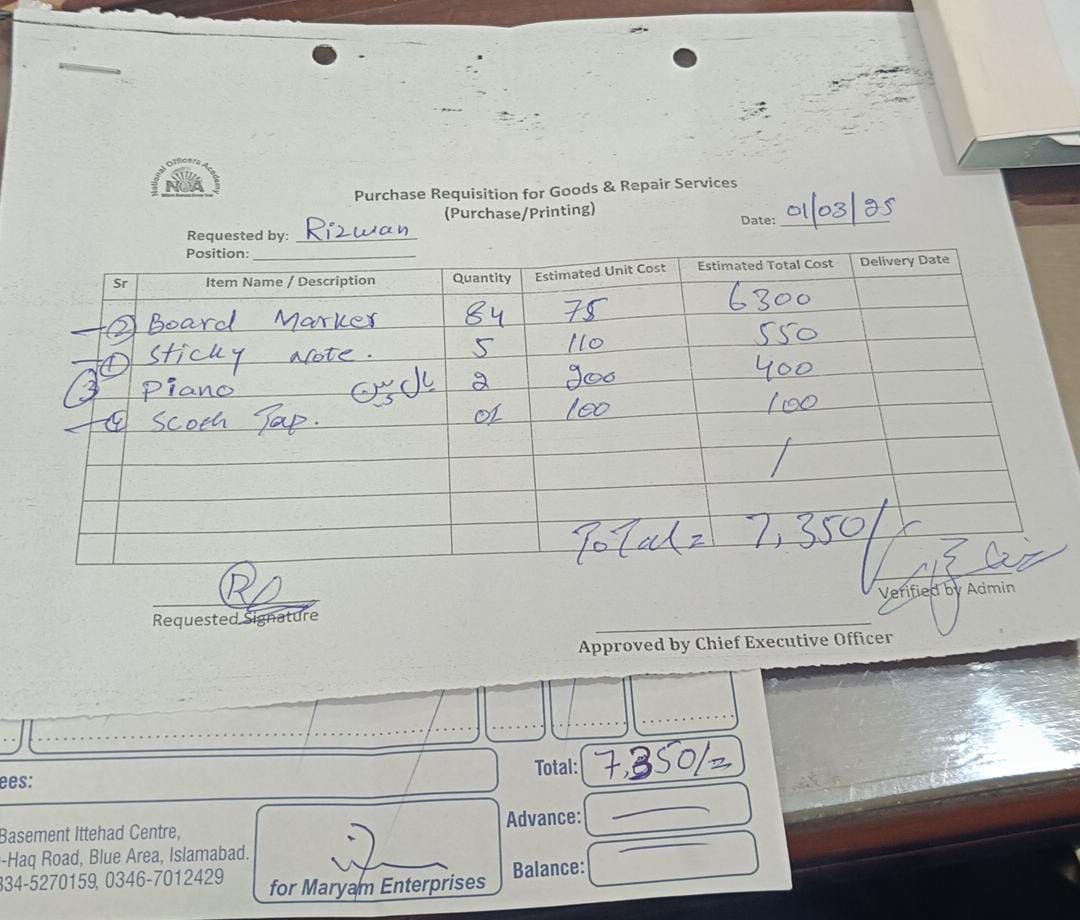 National Officers Academy
NOA
Purchase Requisition for Goods & Repair Services
(Purchase/Printing)
Requested by: Rizwan
Date: 01/03/25
Position:
Sr Item Name / Description Quantity Estimated Unit Cost Estimated Total Cost Delivery Date
② Board Marker 84 75 6300
① Sticky Note. 5 110 550
③ Piano 2 200 400
④ Scoth Tap. 01 100 100
Total = 7,350/-
Requested Signature
Verified by Admin
Approved by Chief Executive Officer
ees:
Total: 7,350/=
Advance:
Balance:
Basement Ittehad Centre,
-Haq Road, Blue Area, Islamabad.
334-5270159, 0346-7012429
for Maryam Enterprises